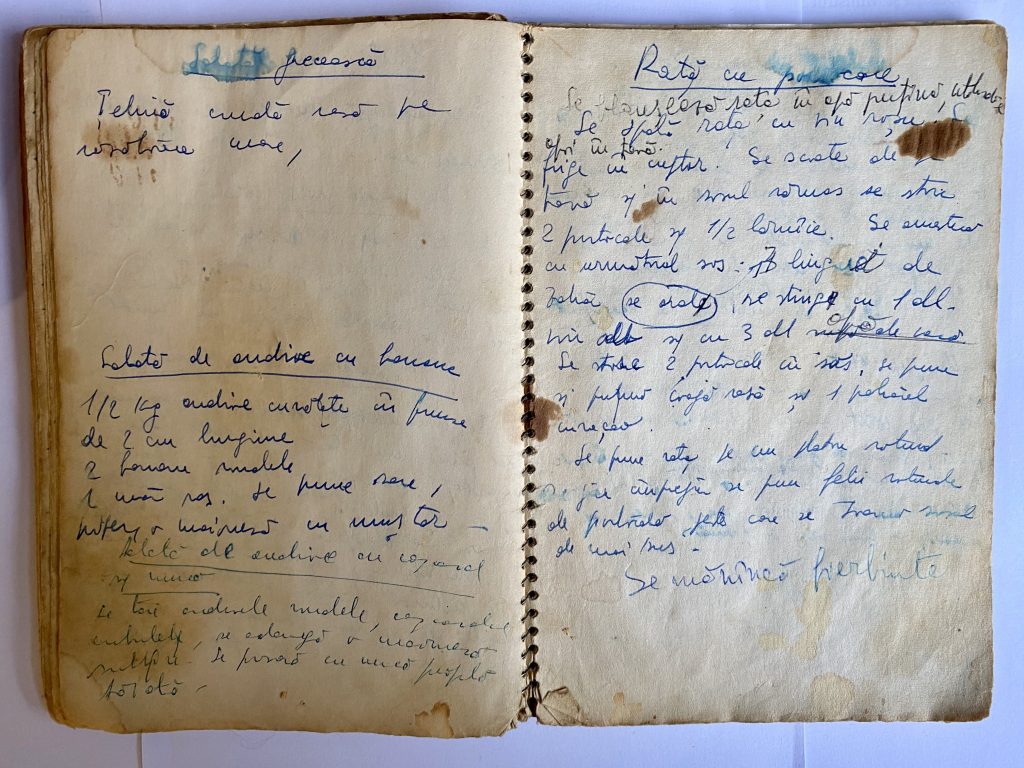 Salată grecească
Țelină crudă rasă pe
răzătoarea mare,
Salată de andive cu banane
1/2 kg andive curățate în frunze
de 2 cm lungime
2 banane rudele
1 măr ras. Se pune sare,
piper, o maioneză cu muștar –
Salată de andive cu cașcaval
și nucă
se taie andivele rudele, cașcavalul
cubulețe, se adaugă o maioneză
subțire. Se presară cu nucă prăjită
sărată –
Rață cu portocale
Se rața în apă puțină,
apoi în tavă.
Se spală rața cu vin roșu. Se
frige in cuptor. Se scoate de pe
tavă și în sosul rămas se storc
2 portocale și 1/2 lămîie. Se amestecă
cu următorul sos: de
zahăr se arde, se stinge cu 1 dl.
vin alb și cu 3 dl apă supă de carne
Se storc 2 portocale în sos, se pune
și puțină coajă rasă și 1 păhărel
curaçao.
Se pune rața pe un platou rotund.
De jur împrejur se pun felii rotunde
de portocală peste care se toarnă sosul
de mai sus –
Se mănîncă fierbinte